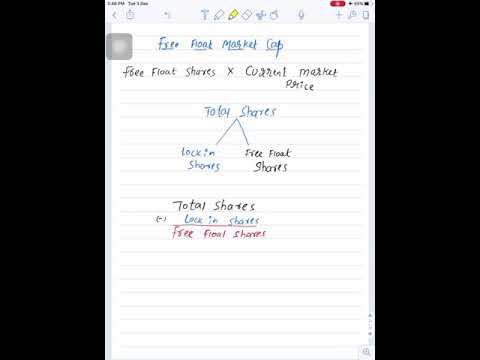 3:46 PM Tue 3 Dec
Free Float Market Cap
Free Float Shares X Current Market
Price
Total Shares
Lock in
Shares
Free Float
Shares
Total Shares
(-) Lock in Shares
Free Float Shares